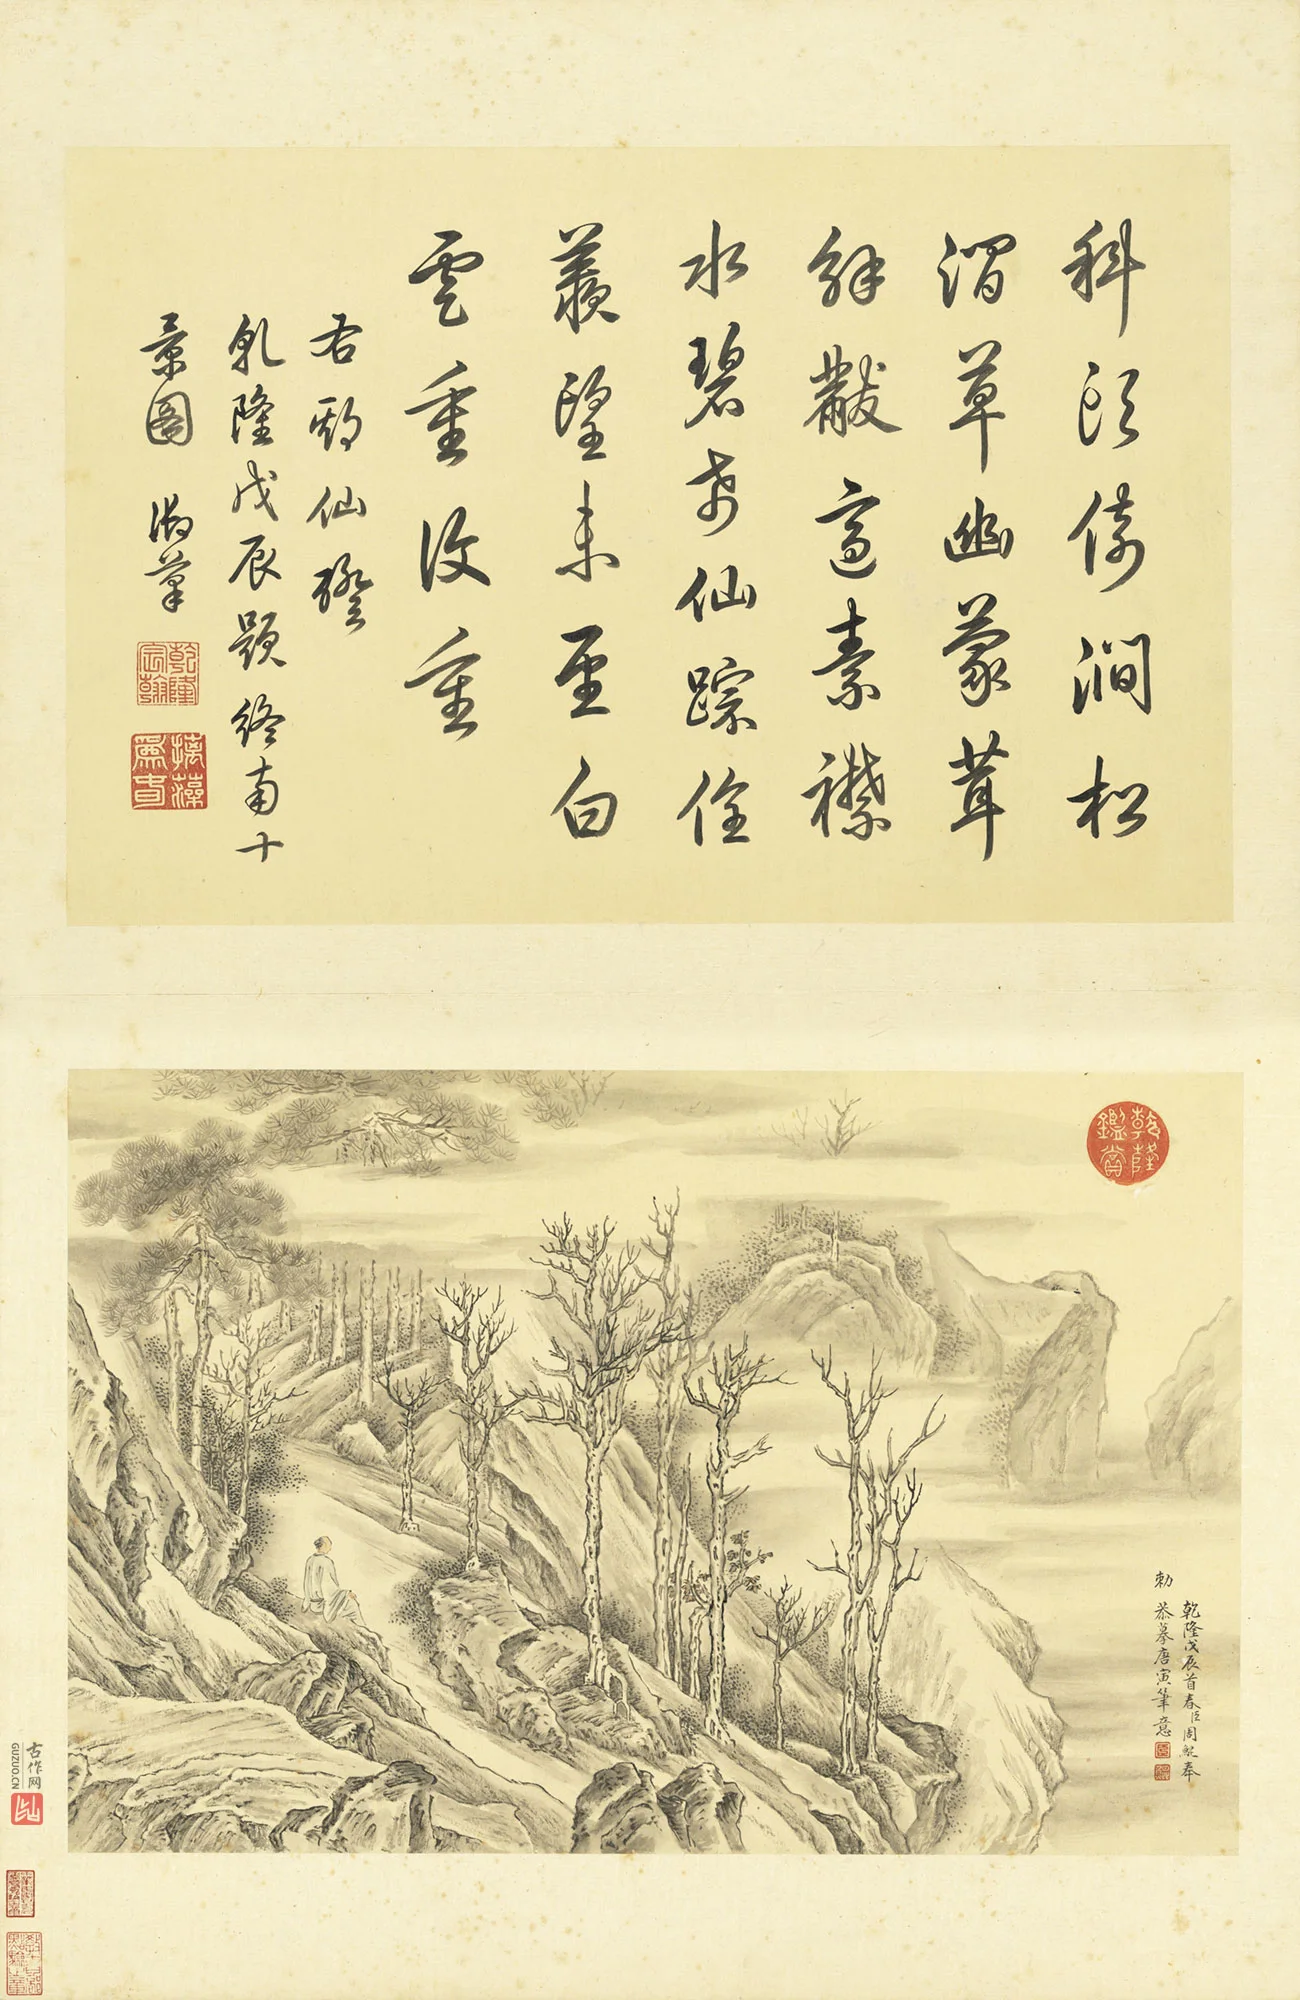 科頭倚澗松
澗草幽蒙茸
解黻適素襟
水碧希仙踪佺
羨望未至白
雲重復重
右期仙磴
乾隆戊辰題終南十
景圖 御筆
乾隆宸翰
摛藻為春
乾隆鑑賞
乾隆戊辰首春臣周鯤奉
勅恭摹唐寅筆意
古作网
GUZUO.CN